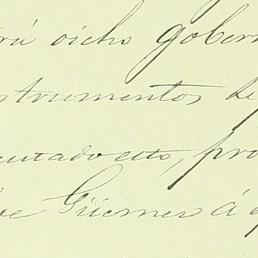 rá dicho gobern
strumentos de
cutado esto, pro
de Güemes á q